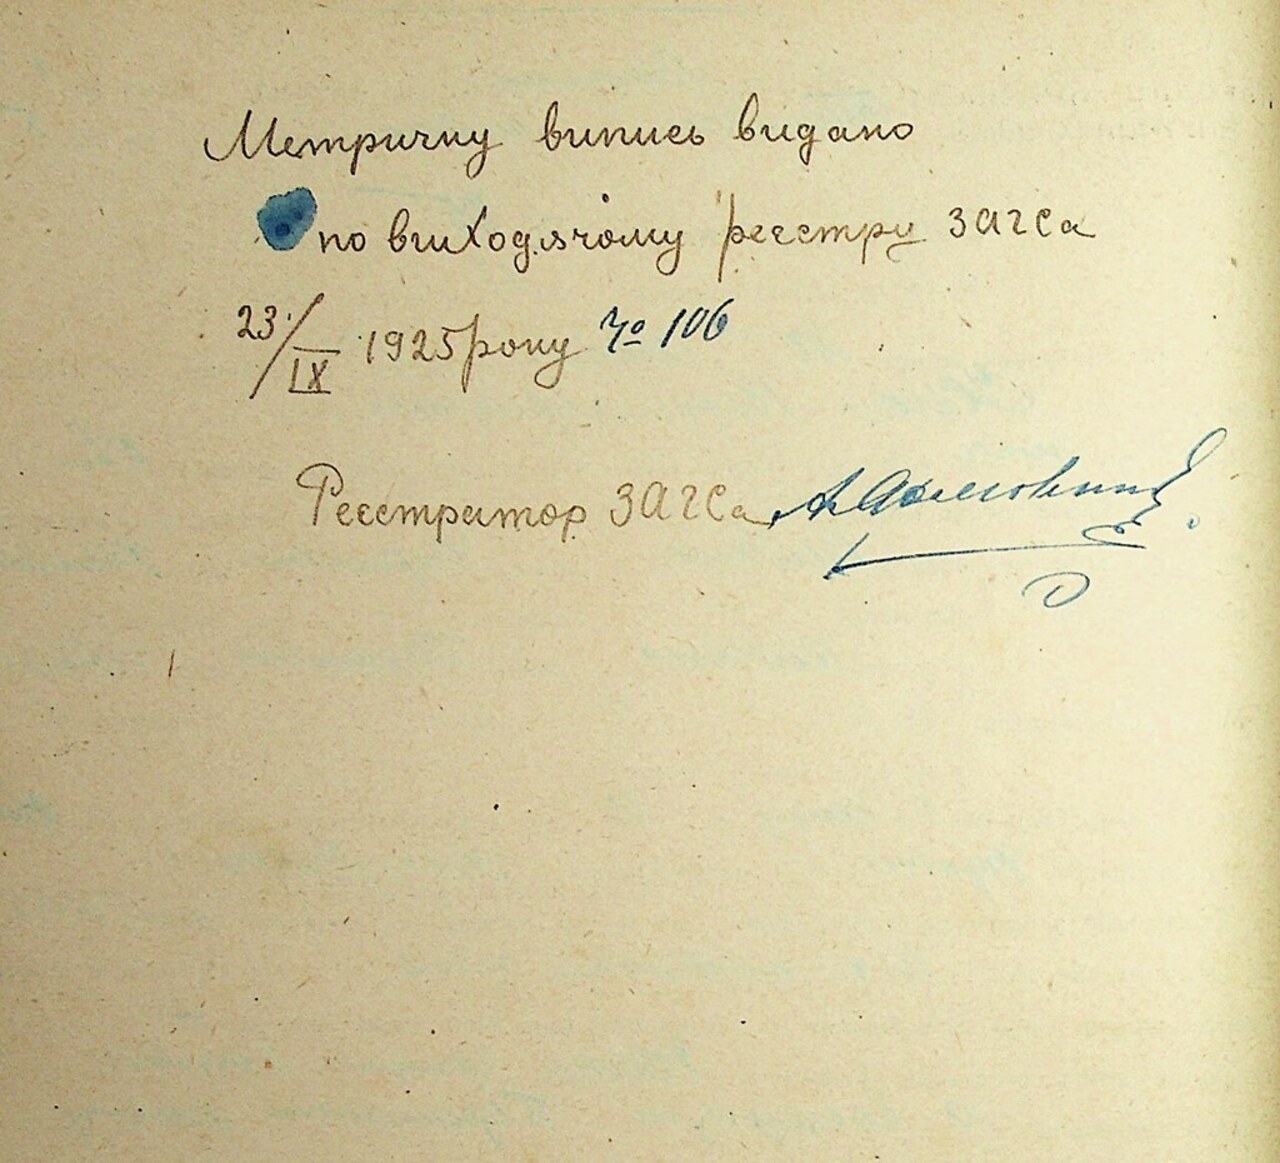 Метричну випись видано
по виходячому реєстру ЗАГСа
23/IX 1925 року № 106
Реєстратор ЗАГСа